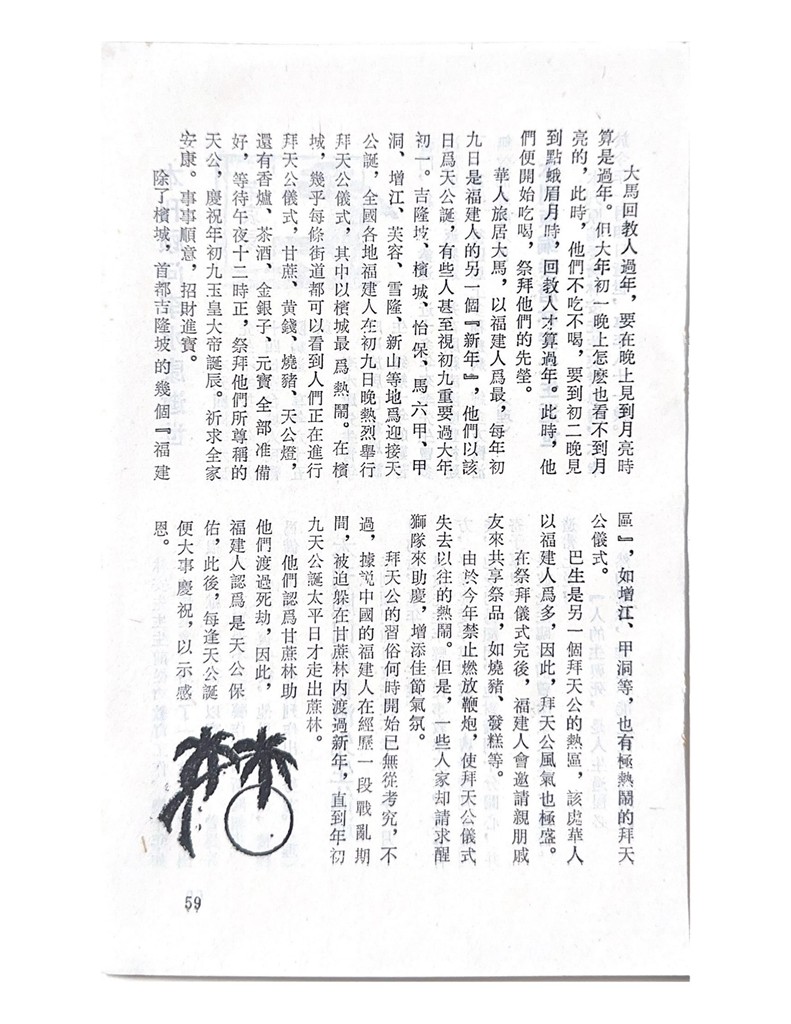 大馬回教人過年，要在晚上見到月亮時
算是過年。但大年初一晚上怎麽也看不到月
亮的，此時，他們不吃不喝，要到初二晚見
到點蛾眉月時，回教人才算過年。此時，他
們便開始吃喝，祭拜他們的先塋。
華人旅居大馬，以福建人爲最，每年初
九日是福建人的另一個『新年』，他們以該
日爲天公誕，有些人甚至視初九重要過大年
初一。吉隆坡、檳城、怡保、馬六甲、甲
洞、增江、芙容、雪隆、新山等地爲迎接天
公誕，全國各地福建人在初九日晚熱烈舉行
拜天公儀式，其中以檳城最爲熱鬧。在檳
城，幾乎每條街道都可以看到人們正在進行
拜天公儀式，甘蔗、黄錢、燒豬、天公燈，
還有香爐、茶酒、金銀子、元寶全部准備
好，等待午夜十二時正，祭拜他們所尊稱的
天公，慶祝年初九玉皇大帝誕辰。祈求全家
安康。事事順意，招財進寶。
除了檳城，首都吉隆坡的幾個『福建
區』，如增江、甲洞等，也有極熱鬧的拜天
公儀式。
巴生是另一個拜天公的熱區，該處華人
以福建人爲多，因此，拜天公風氣也極盛。
在祭拜儀式完後，福建人會邀請親朋戚
友來共享祭品，如燒豬、發糕等。
由於今年禁止燃放鞭炮，使拜天公儀式
失去以往的熱鬧。但是，一些人家却請求醒
獅隊來助慶，增添佳節氣氛。
拜天公的習俗何時開始已無從考究，不
過，據説中國的福建人在經歷一段戰亂期
間，被迫躲在甘蔗林内渡過新年，直到年初
九天公誕太平日才走出蔗林。
他們認爲甘蔗林助
他們渡過死劫，因此，
福建人認爲是天公保
佑，此後，每逢天公誕
便大事慶祝，以示感
恩。
59